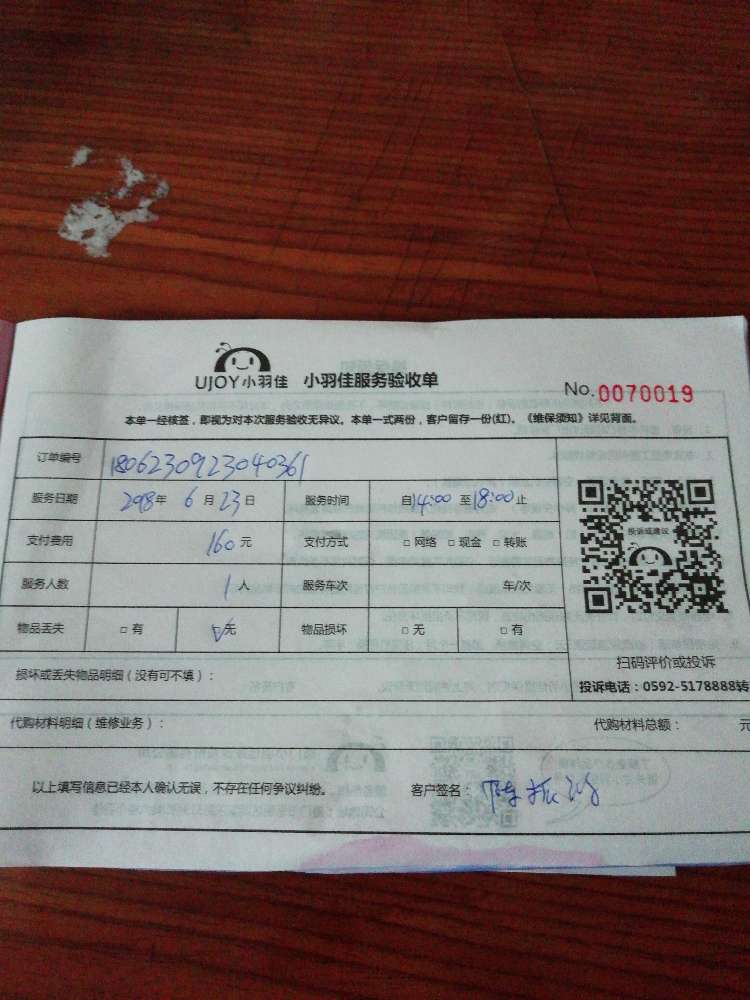 UJOY小羽佳 小羽佳服务验收单
No.0070019
本单一经核签，即视为对本次服务验收无异议。本单一式两份，客户留存一份(红)。《维保须知》详见背面。
订单编号 1806230923040361
服务日期 2018年 6月 23日 服务时间 自14:00至18:00止
支付费用 160元 支付方式 □ 网络 □ 现金 □ 转账
服务人数 1人 服务车次 车/次
投诉或建议
物品丢失 □ 有 ☑无 物品损坏 □ 无 □ 有
扫码评价或投诉
损坏或丢失物品明细（没有可不填）：
投诉电话：0592-5178888转
代购材料明细（维修业务）： 代购材料总额： 元
以上填写信息已经本人确认无误，不存在任何争议纠纷。 客户签名：陈振